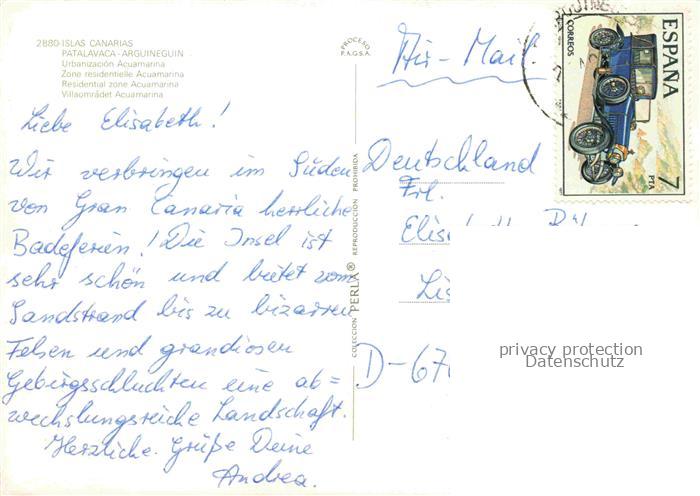 2880-ISLAS CANARIAS
PATALAVACA-ARGUINEGUIN
Urbanización Acuamarina
Zone residentielle Acuamarina
Residential zone Acuamarina
Villaområdet Acuamarina
Liebe Elisabeth!
Wir verbringen im Süden
von Gran Canaria herrliche
Badeferien! Die Insel ist
sehr schön und bietet vom
Sandstrand bis zu bizarren
Felsen und grandiosen
Gebirgsschluchten eine ab=
wechslungsreiche Landschaft.
Herzliche Grüße Deine
Andrea.
PROCESO
P.A.G.S.A.
COLECCION PERLA® REPRODUCCION PROHIBIDA
Air-Mail
Deutschland
Frl.
D-67
CORREOS
ESPAÑA
7 PTA
privacy protection
Datenschutz